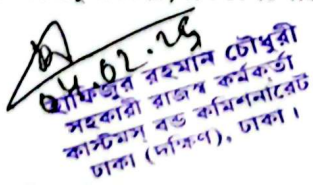 04.02.25
হাফিজুর রহমান চৌধুরী
সহকারী রাজস্ব কর্মকর্তা
কাস্টমস্ বন্ড কমিশনারেট
ঢাকা (দক্ষিণ), ঢাকা।